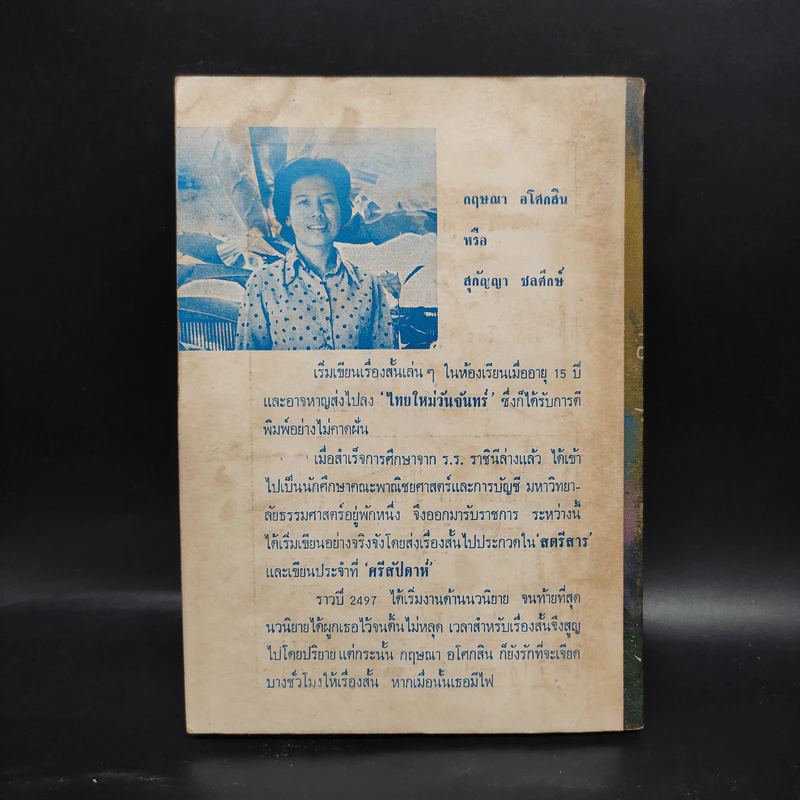 กฤษณา อโศกสิน
หรือ
สุกัญญา ชลศึกษ์
เริ่มเขียนเรื่องสั้นเล่น ๆ ในห้องเรียนเมื่ออายุ 15 ปี
และอาจหาญส่งไปลง 'ไทยใหม่วันจันทร์' ซึ่งก็ได้รับการตี
พิมพ์อย่างไม่คาดฝัน
เมื่อสำเร็จการศึกษาจาก ร.ร. ราชินีล่างแล้ว ได้เข้า
ไปเป็นนักศึกษาคณะพาณิชยศาสตร์และการบัญชี มหาวิทยา-
ลัยธรรมศาสตร์อยู่พักหนึ่ง จึงออกมารับราชการ ระหว่างนี้
ได้เริ่มเขียนอย่างจริงจังโดยส่งเรื่องสั้นไปประกวดใน 'สตรีสาร'
และเขียนประจำที่ 'ศรีสัปดาห์'
ราวปี 2497 ได้เริ่มงานด้านนวนิยาย จนท้ายที่สุด
นวนิยายได้ผูกเธอไว้จนดิ้นไม่หลุด เวลาสำหรับเรื่องสั้นจึงสูญ
ไปโดยปริยาย แต่กระนั้น กฤษณา อโศกสิน ก็ยังรักที่จะเจียด
บางชั่วโมงให้เรื่องสั้น หากเมื่อนั้นเธอมีไฟ